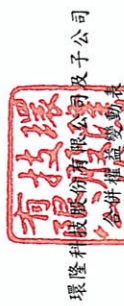 環隆科技股份有限公司及子公司
合併權益變動表